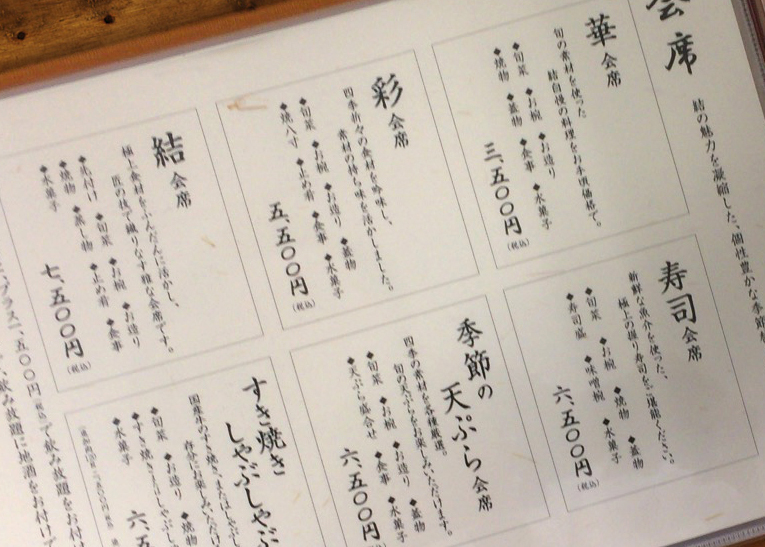 会席
結の魅力を凝縮した、個性豊かな季節
華会席
旬の素材を使った
結自慢の料理をお手頃価格で。
◆旬菜 ◆お椀 ◆お造り
◆焼物 ◆蓋物 ◆食事 ◆水菓子
三、五〇〇円(税込)
彩会席
四季折々の食材を吟味し、
素材の持ち味を活かしました。
◆旬菜 ◆お椀 ◆お造り ◆蓋物
◆焼八寸 ◆止め肴 ◆食事 ◆水菓子
五、五〇〇円(税込)
結会席
極上食材をふんだんに活かし、
匠の技で織りなす雅な会席です。
◆先付け ◆旬菜 ◆お椀 ◆お造り
◆焼物 ◆蒸し物 ◆止め肴 ◆食事
◆水菓子
七、五〇〇円(税込)
寿司会席
新鮮な魚介を使った、
極上の握り寿司をご堪能ください。
◆旬菜 ◆お椀 ◆焼物 ◆蓋物
◆寿司盛 ◆味噌椀 ◆水菓子
六、五〇〇円(税込)
季節の
天ぷら会席
四季の素材を各種厳選。
旬の天ぷらをお楽しみいただけます。
◆旬菜 ◆お椀 ◆お造り ◆蓋物
◆天ぷら盛合せ ◆食事 ◆水菓子
六、五〇〇円
すき焼き
しゃぶしゃぶ
国産牛のすき焼きまたはしゃぶし
存分にお楽しみいただけ
◆旬菜 ◆お造り ◆焼物
◆すき焼きまたはしゃぶし
◆水菓子
六、五
プラス一、五〇〇円(税込)で飲み放題をお付け
で飲み放題に地酒をお付けし